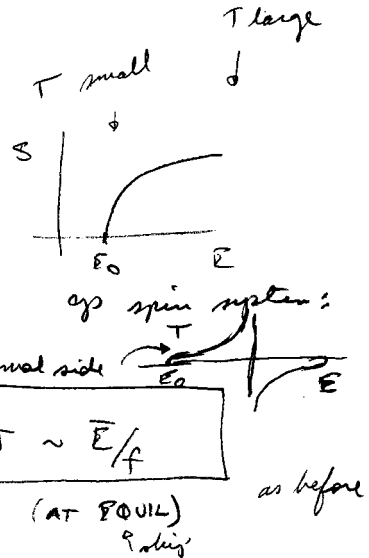 T large
T small
S
E₀ E
spin system:
T
mal side
E₀ E
T ~ Ē/f
as before
(AT EQUIL)